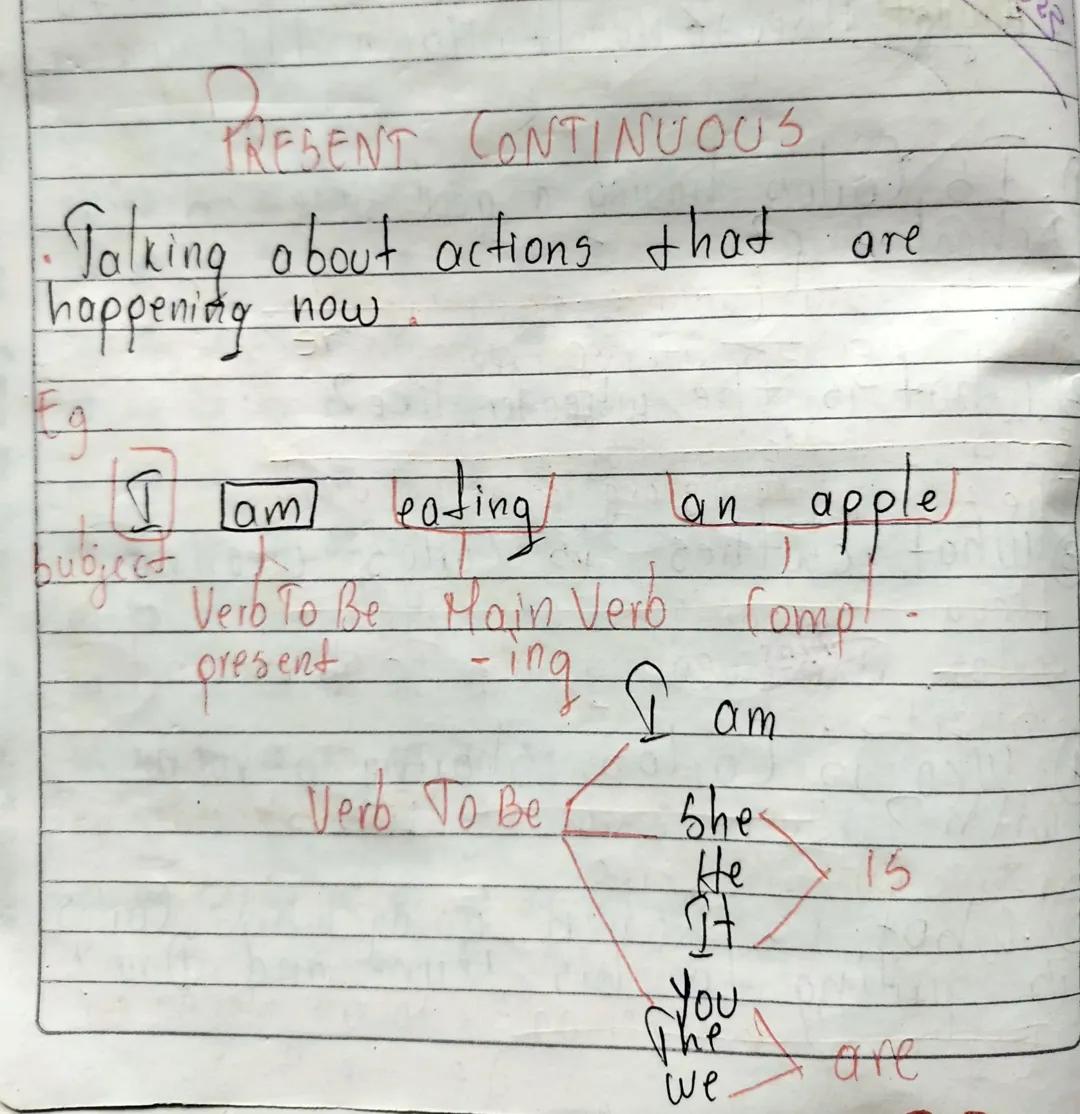 PRESENT CONTINUOUS
· Talking about actions that are
happening now.
Eg
I am eating an apple
Subject
Verb To Be Main Verb Compl.
present -ing
I am
Verb To Be She
He is
It
You
The
we are